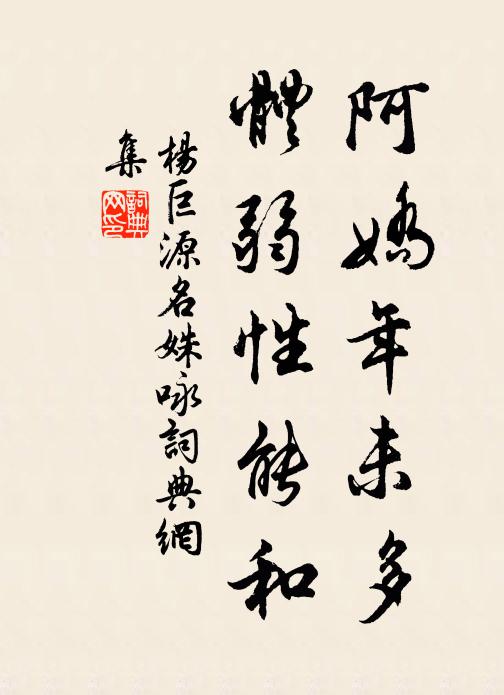 阿嬌年未多
體弱性能和
楊巨源名姝咏詞典網
集
詞典网印